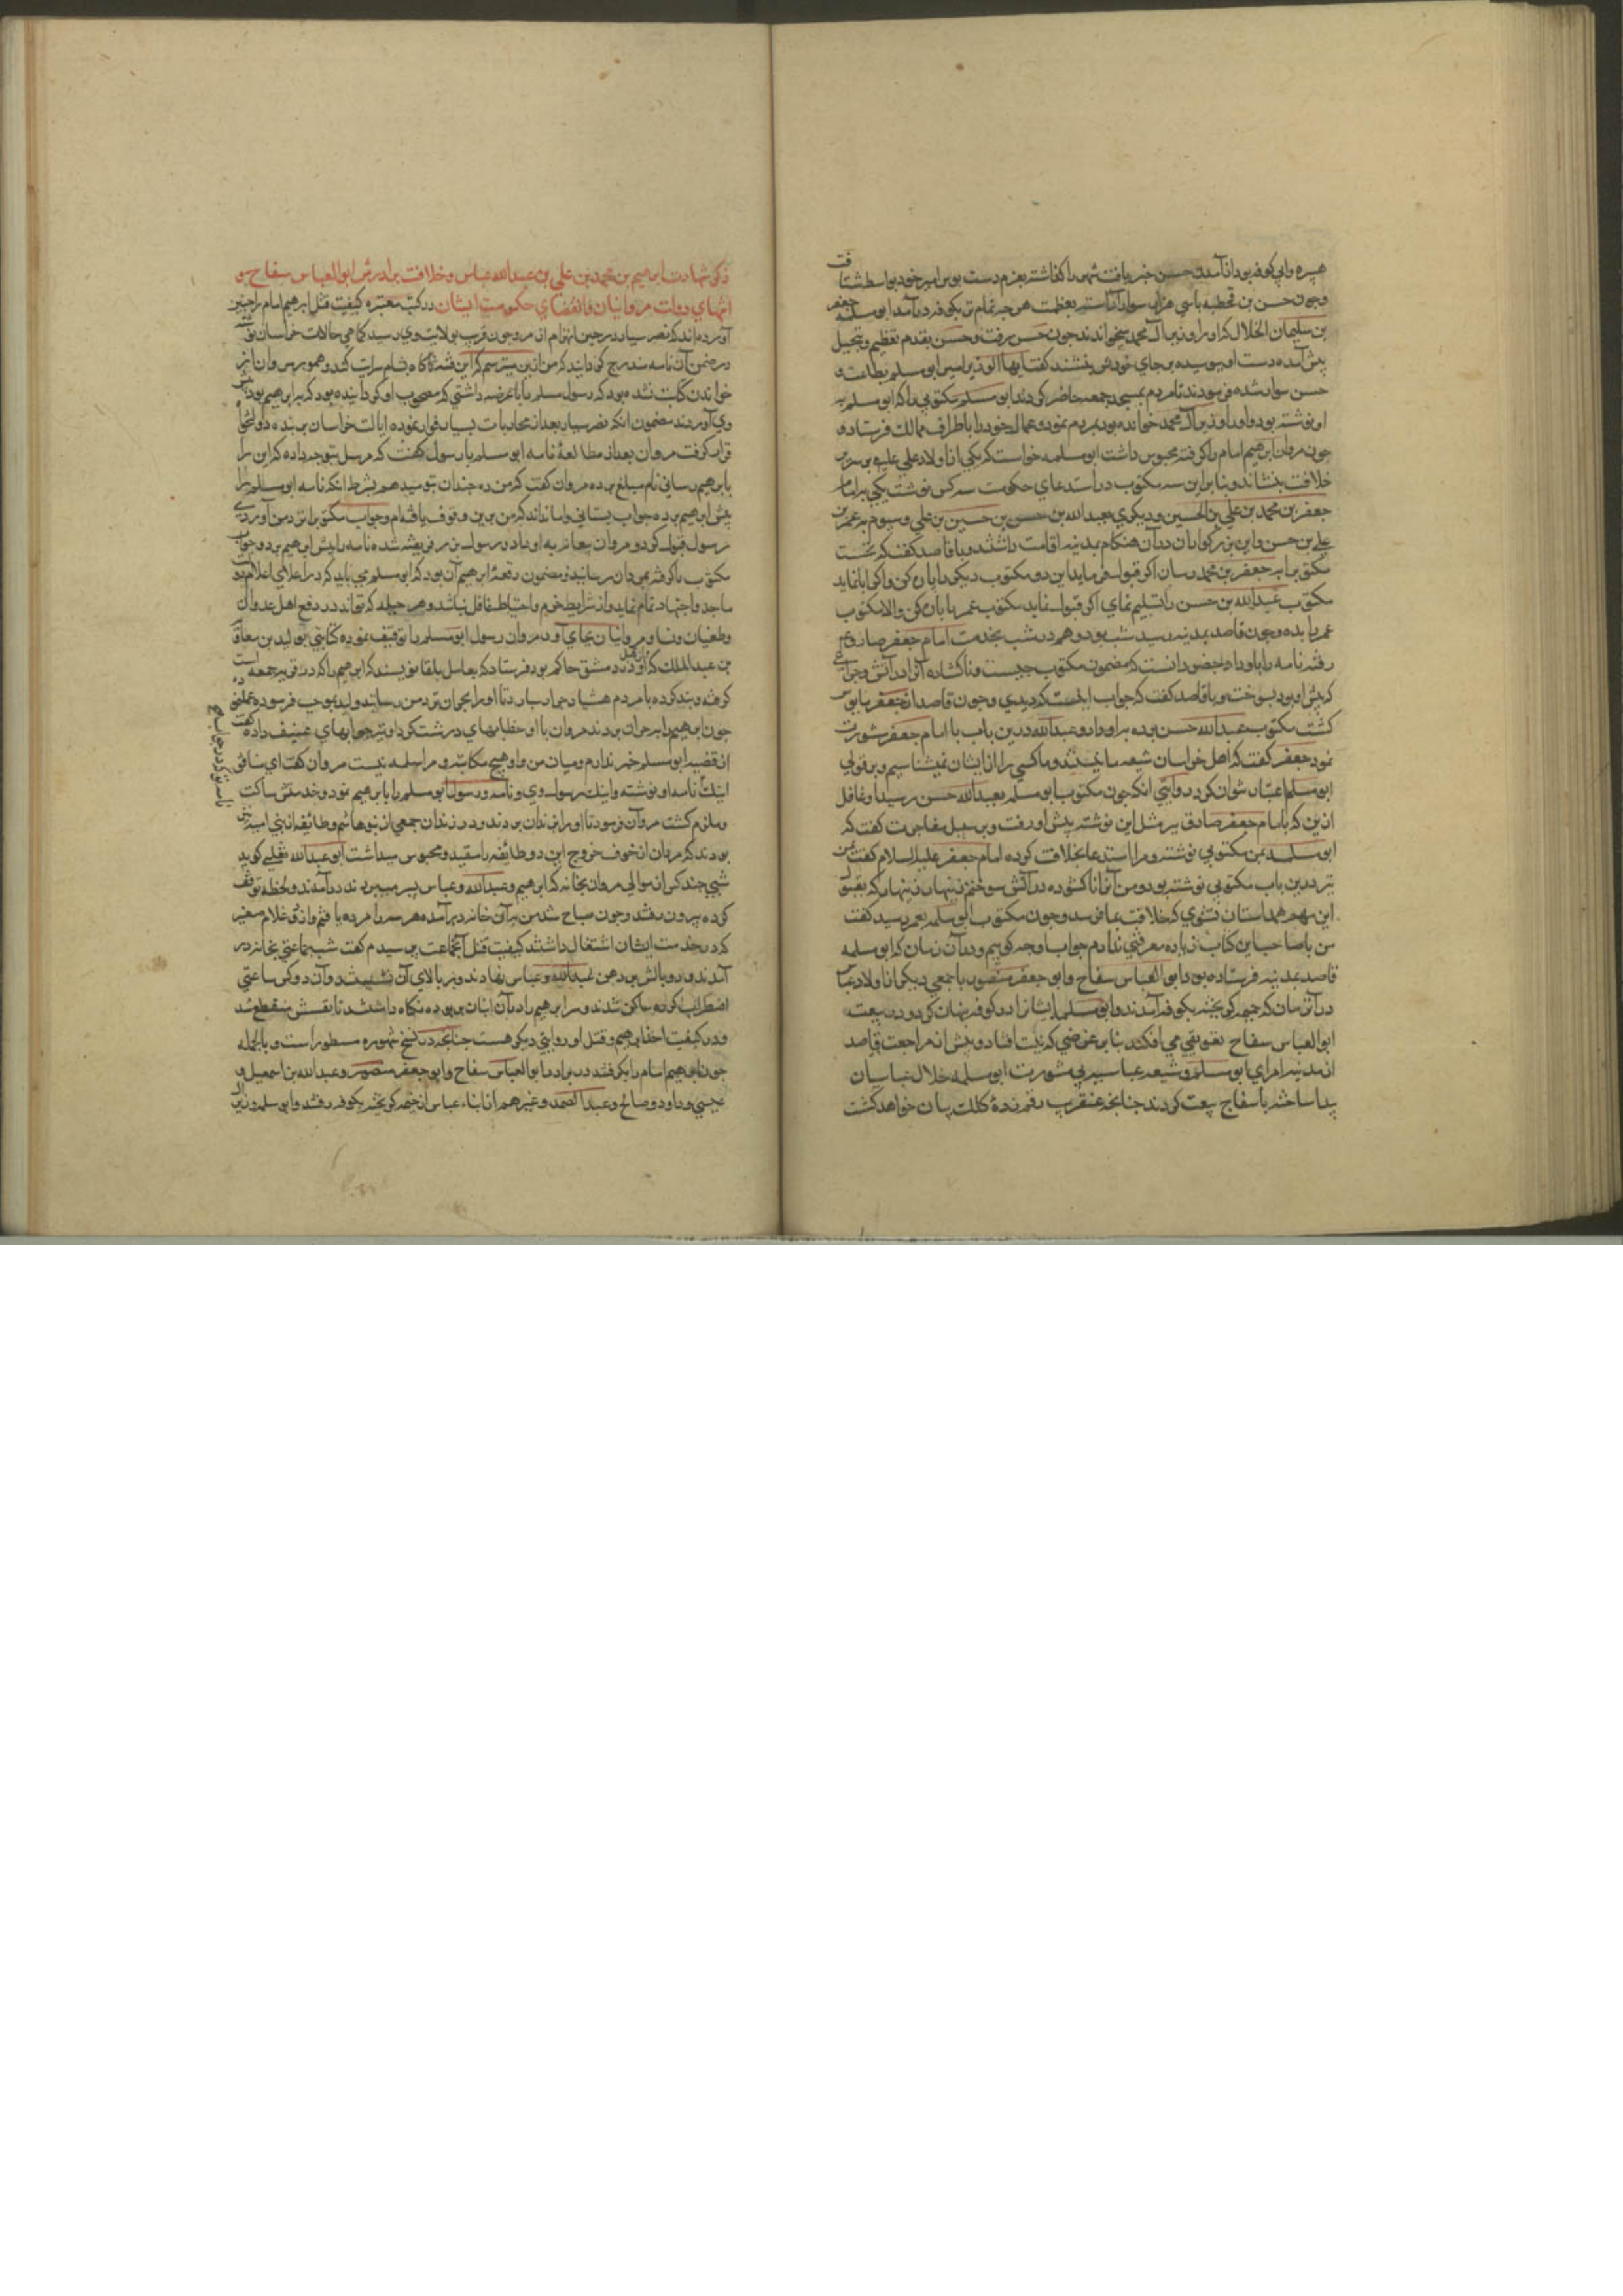 هبیره والی کوفه بود از آمدن حسن خبر یافت شهر را گذاشته بعزم دست بوس امیر خود بواسط شتافت
و چون حسن بن قحطبه با سی هزار سوار آراسته بعظمت هر چه تمام تر بکوفه درآمد ابو سلمه جعفر
بن سلیمان الخلال که او را وزیر آل محمد میخواندند چون حسن برفت و حسن بقدم تعظیم و تبجیل
پیش آمده دست او ببوسیده بر جای خودش بنشاند گفت ایها الوزیر امیر ابو مسلم بطاعت
حسن سوار شده فرمودند تا مردم بمسجد جمعه حاضر کردند ابو مسلم مکتوبی را که ابو مسلم به
او نوشته بود و او را وزیر آل محمد خوانده بود بمردم نمود و عمال خود را باطراف ممالک فرستاد و
چون مروان ابرهیم امام را گرفته محبوس داشت ابو سلمه خواست که یکی از اولاد علی علیه بر سریر
خلافت بنشاند و بنا بر این سه مکتوب در استدعای حکومت سه کس نوشت یکی بر امام
جعفر بن محمد بن علی بن الحسین و دیگری بعبد الله بن حسن بن حسین بن علی و سیوم به عمر بن
علی بن حسن و این بزرگواران در آن هنگام بمدینه اقامت داشتند و با قاصد گفت که نخست
مکتوب را به جعفر بن محمد رسان اگر قبول فرماید این دو مکتوب دیگر را پاره کن و اگر ابا نماید
مکتوب عبد الله بن حسن را تسلیم نمای اگر قبول نماید مکتوب عمر را پاره کن والا مکتوب
عمر را بده و چون قاصد بمدینه رسید شب بود و هم در شب بخدمت امام جعفر صادق
رفته نامه را باو داد حضور دانست که مضمون مکتوب چیست و ناگشاده آنرا در آتش چراغی
که پیش او بود بسوخت و با قاصد گفت که جواب اینست که دیدی و چون قاصد از جعفر مایوس
گشت مکتوب عبد الله حسن بوده براو داد و عبد الله در این باب با امام جعفر مشورت
نمود جعفر گفت که اهل خراسان شیعه ما نیستند و ما کسی را از ایشان نمیشناسیم و بر قول
ابو مسلم اعتبار نتوان کرد در روایتی آنکه چون مکتوب ابو مسلم بعبد الله حسن رسید او غافل
ازین که با امام جعفر صادق نیز مثل این نوشته پیش او رفت و بر سبیل مفاخرت گفت که
ابو سلمه بمن مکتوبی نوشته و مرا استدعا بخلافت کرده امام جعفر علیه السلام گفت بمن
نیز درین باب مکتوبی نوشته بود و من آنرا ناگشوده در آتش سوختم زینهار زینهار که بقول
این مهم همداستان نشوی که خلافت بما نمی رسد و چون مکتوب ابو سلمه بعمر رسید گفت
من با صاحب این کتاب زیاده معرفتی ندارم جواب او چه گویم و در آن زمان که ابو سلمه
قاصد بمدینه فرستاده بود ابو العباس سفاح و ابو جعفر منصور با جمعی دیگر از اولاد عباس
در آن زمان که جیمه گریخته بکوفه آمدند و ابو سلمه ایشانرا در کوفه پنهان کرد و در بیعت
ابو العباس سفاح تعویقی می افکند بنا بر غرضی که نیت افتاد و پیش از مراجعت قاصد
از مدینه امرای ابو مسلم و شیعه عباسیه بی مشورت ابو سلمه خلال عباسیان
پیدا ساخته با سفاح بیعت کردند چنانچه عنقریب رقم زده کلک بیان خواهد گشت
ذکر شهادت ابرهیم بن محمد بن علی بن عبد الله عباس و خلافت برادرش ابو العباس سفاح و
انتهای دولت مروانیان و انقضای حکومت ایشان در کتب معتبره کیفیت قتل ابرهیم امام را چنین
آورده اند که نصر سیار در حین انهزام از مرو چون قریب بولایت وی رسید کماهی حالات خراسان نوشته
در ضمن آن نامه مندرج گردانید که من ازین میترسم که این فتنه ناگاه بشام سرایت کند و هنوز مروان از
خواندن کتابت نشده بود که رسول ابو مسلم را با عرضه داشتی که مصحوب او گردانیده بود که بابرهیم بود پیش
وی آوردند مضمون آنکه نصر سیار بعد از محاربات بسیار فرار نموده ایالت خراسان بر بنده دولتخواه
قرار گرفت مروان بعد از مطالعه نامه ابو مسلم با رسول گفت که مرسل بتو چه داده که این را
بابرهیم رسانی نام مبلغی برده مروان گفت که من ده چندان بتو میدهم بشرط آنکه نامه ابو مسلم را
پیش ابرهیم برده جواب بستانی و اما نداند که من برین وقوف یافته ام و جواب مکتوب را نزد من آوری
رسول قبول کرد و مروان نامه باو داد و رسول نزد ابرهیم رفته نامه را پیش ابرهیم برد و جواب
مکتوب را گرفته بمروان رسانید و مضمون رقعه ابرهیم آن بود که ابو مسلم می باید که در اعلای اعلام دو
ما جد و اجتهاد تمام نماید و از شرایط حزم و احتیاط غافل نباشد و هر حیله که تواند در دفع اهل عدوان
و طغیان و فساد مروانیان بجای آورد مروان رسول ابو مسلم را توقیف نموده کتابتی بولید بن معاویة
بن عبد الملک که از قبل او در دمشق حاکم بود فرستاد که بعامل بلقا نویسند که ابرهیم را که در قریه جمیمه است
گرفته و بند کرده با مردم هشیار بسپار تا او را بحران نزد من رسانند ولید بموجب فرموده عمل نمود
چون ابرهیم را بحران بردند مروان با او خطابهای درشت کرد او نیز جوابهای عنیف داده گفت
از قضیه ابو مسلم خبر ندارم و میان من و او هیچ مکاتبه و مراسله نیست مروان گفت ای منافق
اینک نامه او نوشته و اینک رسول وی و نامه و رسول ابو مسلم را بابرهیم نمود و خدمتش ساکت
و ملزم گشت مروان فرمود تا او را بزندان بردند و در زندان جمعی از بنو هاشم و طائفه از بنی امیه نیز
بودند که مروان از خوف خروج این دو طایفه را مقید و محبوس میداشت ابو عبد الله ثعلبی گوید
شبی چند کس از موالی مروان بخانه که ابرهیم و عبد الله و عباس پسر میبودند درآمدند و لحظه توقف
کرده بیرون رفتند و چون صباح شد من بر آن خانه درآمده هر سه را مرده یافتم و از دو غلام صغیر
که در خدمت ایشان اشتغال داشتند کیفیت قتل آنجماعت پرسیدم گفت شب جماعتی بخانه در
آمدند و دو بالش بر دهن عبد الله و عباس نهادند و بر بالای آن نشستند و آن دو کس ساعتی
اضطراب کرده ساکن شدند و سر ابرهیم را در آن انبان برده نگاه داشتند تا نفسش منقطع شد
و در کیفیت اخذ ابرهیم و قتل او روایتی دیگر هست چنانچه در نسخ مشهوره مسطور است و بالجمله
چون ابرهیم امام را بگرفتند برادران ابو العباس سفاح و ابو جعفر منصور و عبد الله بن اسمعیل و
عیسی و داود و صالح و عبد الصمد و غیرهم از ابناء عباس از جیمه گریخته بکوفه رفتند و ابو سلمه وزیر آل
نامه تو کرد و جواب